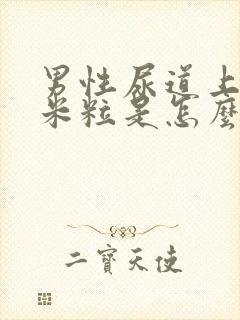 男性尿道上
米粒是怎麼
二寶天使